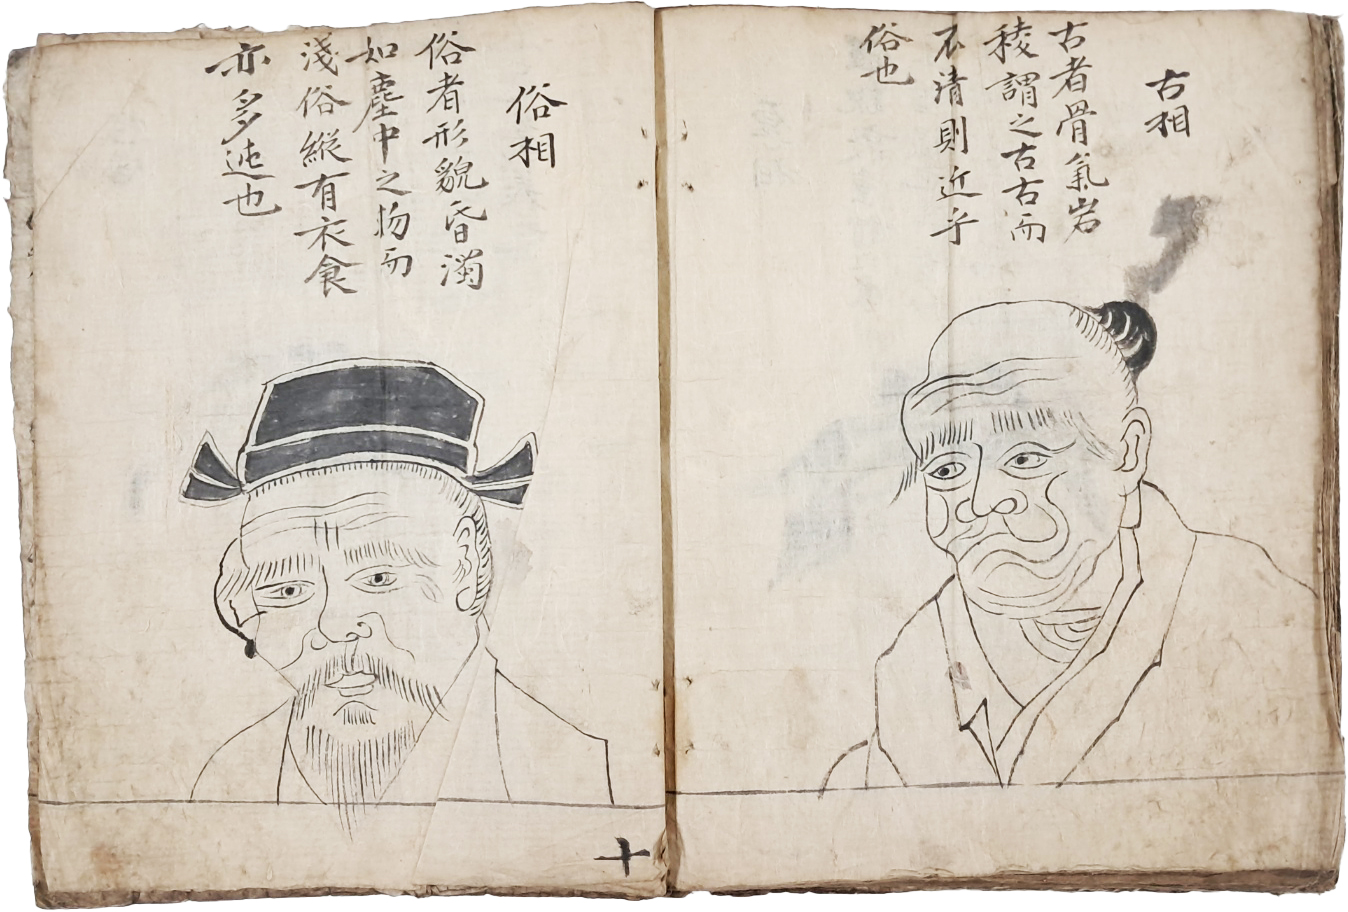 古相
古者骨氣岩
稜謂之古古而
不清則近乎
俗也
俗相
俗者形貌昏濁
如塵中之物而
淺俗縱有衣食
亦多迍也
十